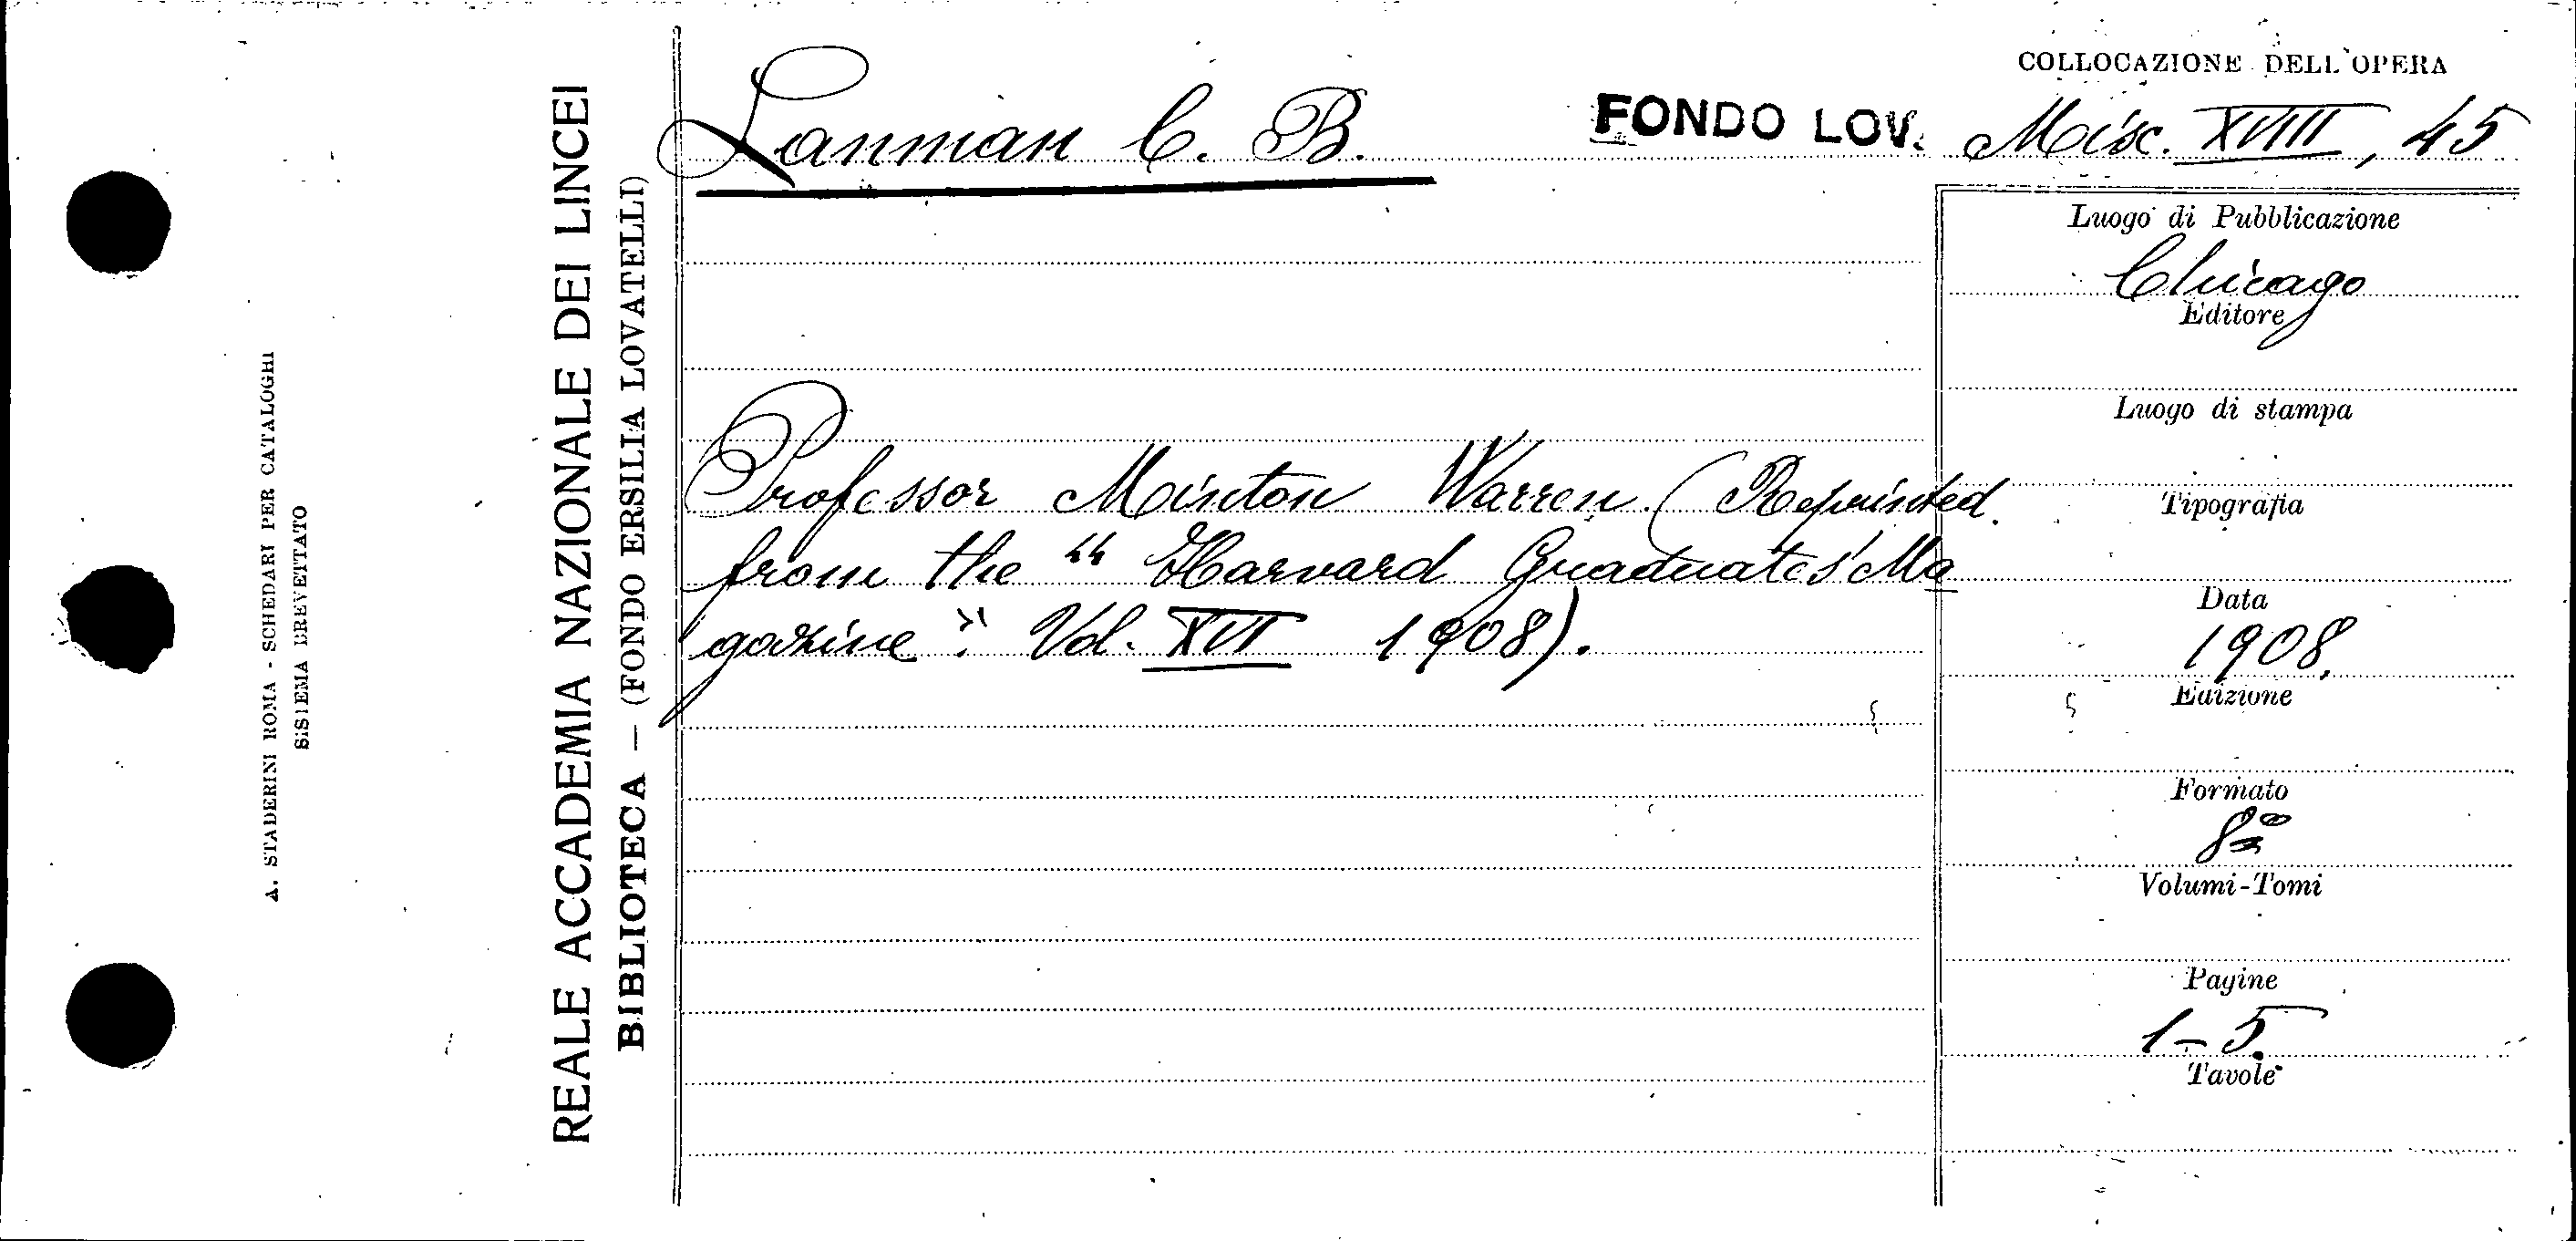 COLLOCAZIONE DELL'OPERA
Lanman C. B.
FONDO LOV. Misc. XVIII, 45
Professor Minton Warren. (Reprinted
from the "Harvard Graduates' Ma
gazine". Vol. XVI 1908).
Luogo di Pubblicazione
Chicago
Editore
Luogo di stampa
Tipografia
Data
1908.
Edizione
Formato
8º
Volumi-Tomi
Pagine
1-5.
Tavole
REALE ACCADEMIA NAZIONALE DEI LINCEI
BIBLIOTECA — (FONDO ERSILIA LOVATELLI)
A. STADERINI ROMA - SCHEDARI PER CATALOGHI
SISTEMA BREVETTATO